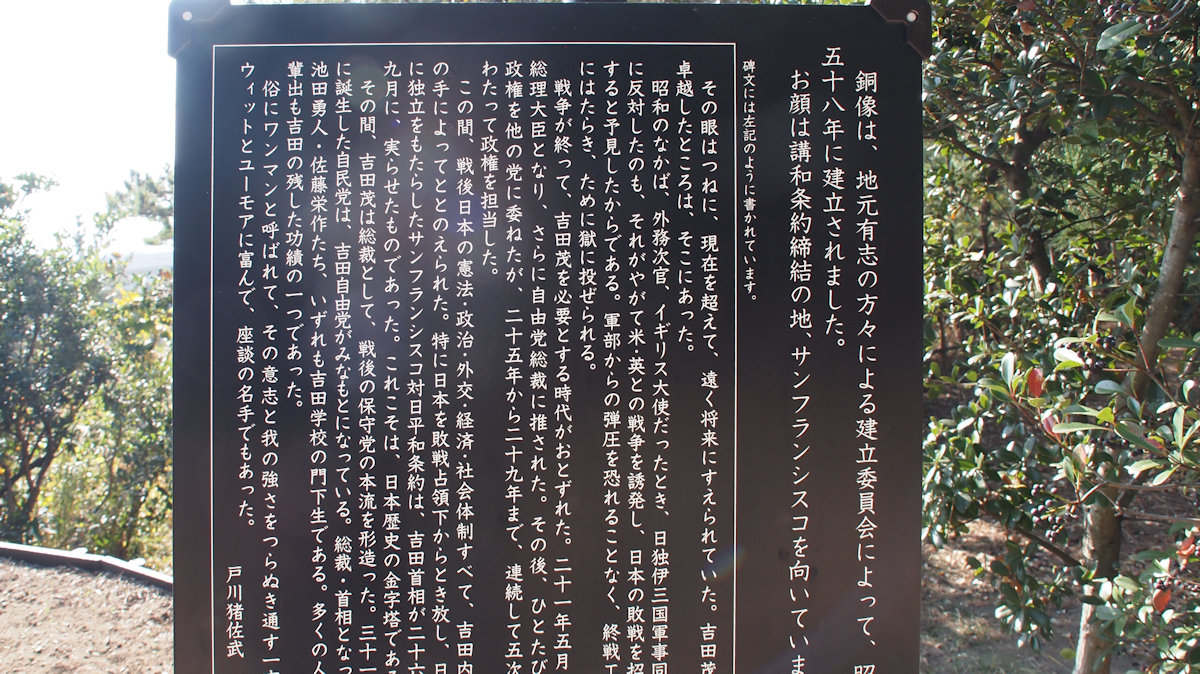 銅像は、地元有志の方々による建立委員会によって、昭
五十八年に建立されました。
お顔は講和条約締結の地、サンフランシスコを向いていま
碑文には左記のように書かれています。
その眼はつねに、現在を超えて、遠く将来にすえられていた。吉田茂
卓越したところは、そこにあった。
昭和のなかば、外務次官、イギリス大使だったとき、日独伊三国軍事同
に反対したのも、それがやがて米・英との戦争を誘発し、日本の敗戦を招
すると予見したからである。軍部からの弾圧を恐れることなく、終戦工
にはたらき、ために獄に投ぜられる。
戦争が終って、吉田茂を必要とする時代がおとずれた。二十一年五月
総理大臣となり、さらに自由党総裁に推された。その後、ひとたび
政権を他の党に委ねたが、二十五年から二十九年まで、連続して五次
わたって政権を担当した。
この間、戦後日本の憲法・政治・外交・経済・社会体制すべて、吉田内
の手によってととのえられた。特に日本を敗戦占領下からとき放し、日
に独立をもたらしたサンフランシスコ対日平和条約は、吉田首相が二十六
九月に、実らせたものであった。これこそは、日本歴史の金字塔である
その間、吉田茂は総裁として、戦後の保守党の本流を形造った。三十一
に誕生した自民党は、吉田自由党がみなもとになっている。総裁・首相となっ
池田勇人・佐藤栄作たち、いずれも吉田学校の門下生である。多くの人
輩出も吉田の残した功績の一つであった。
俗にワンマンと呼ばれて、その意志と我の強さをつらぬき通す一方
ウィットとユーモアに富んで、座談の名手でもあった。
戸川猪佐武